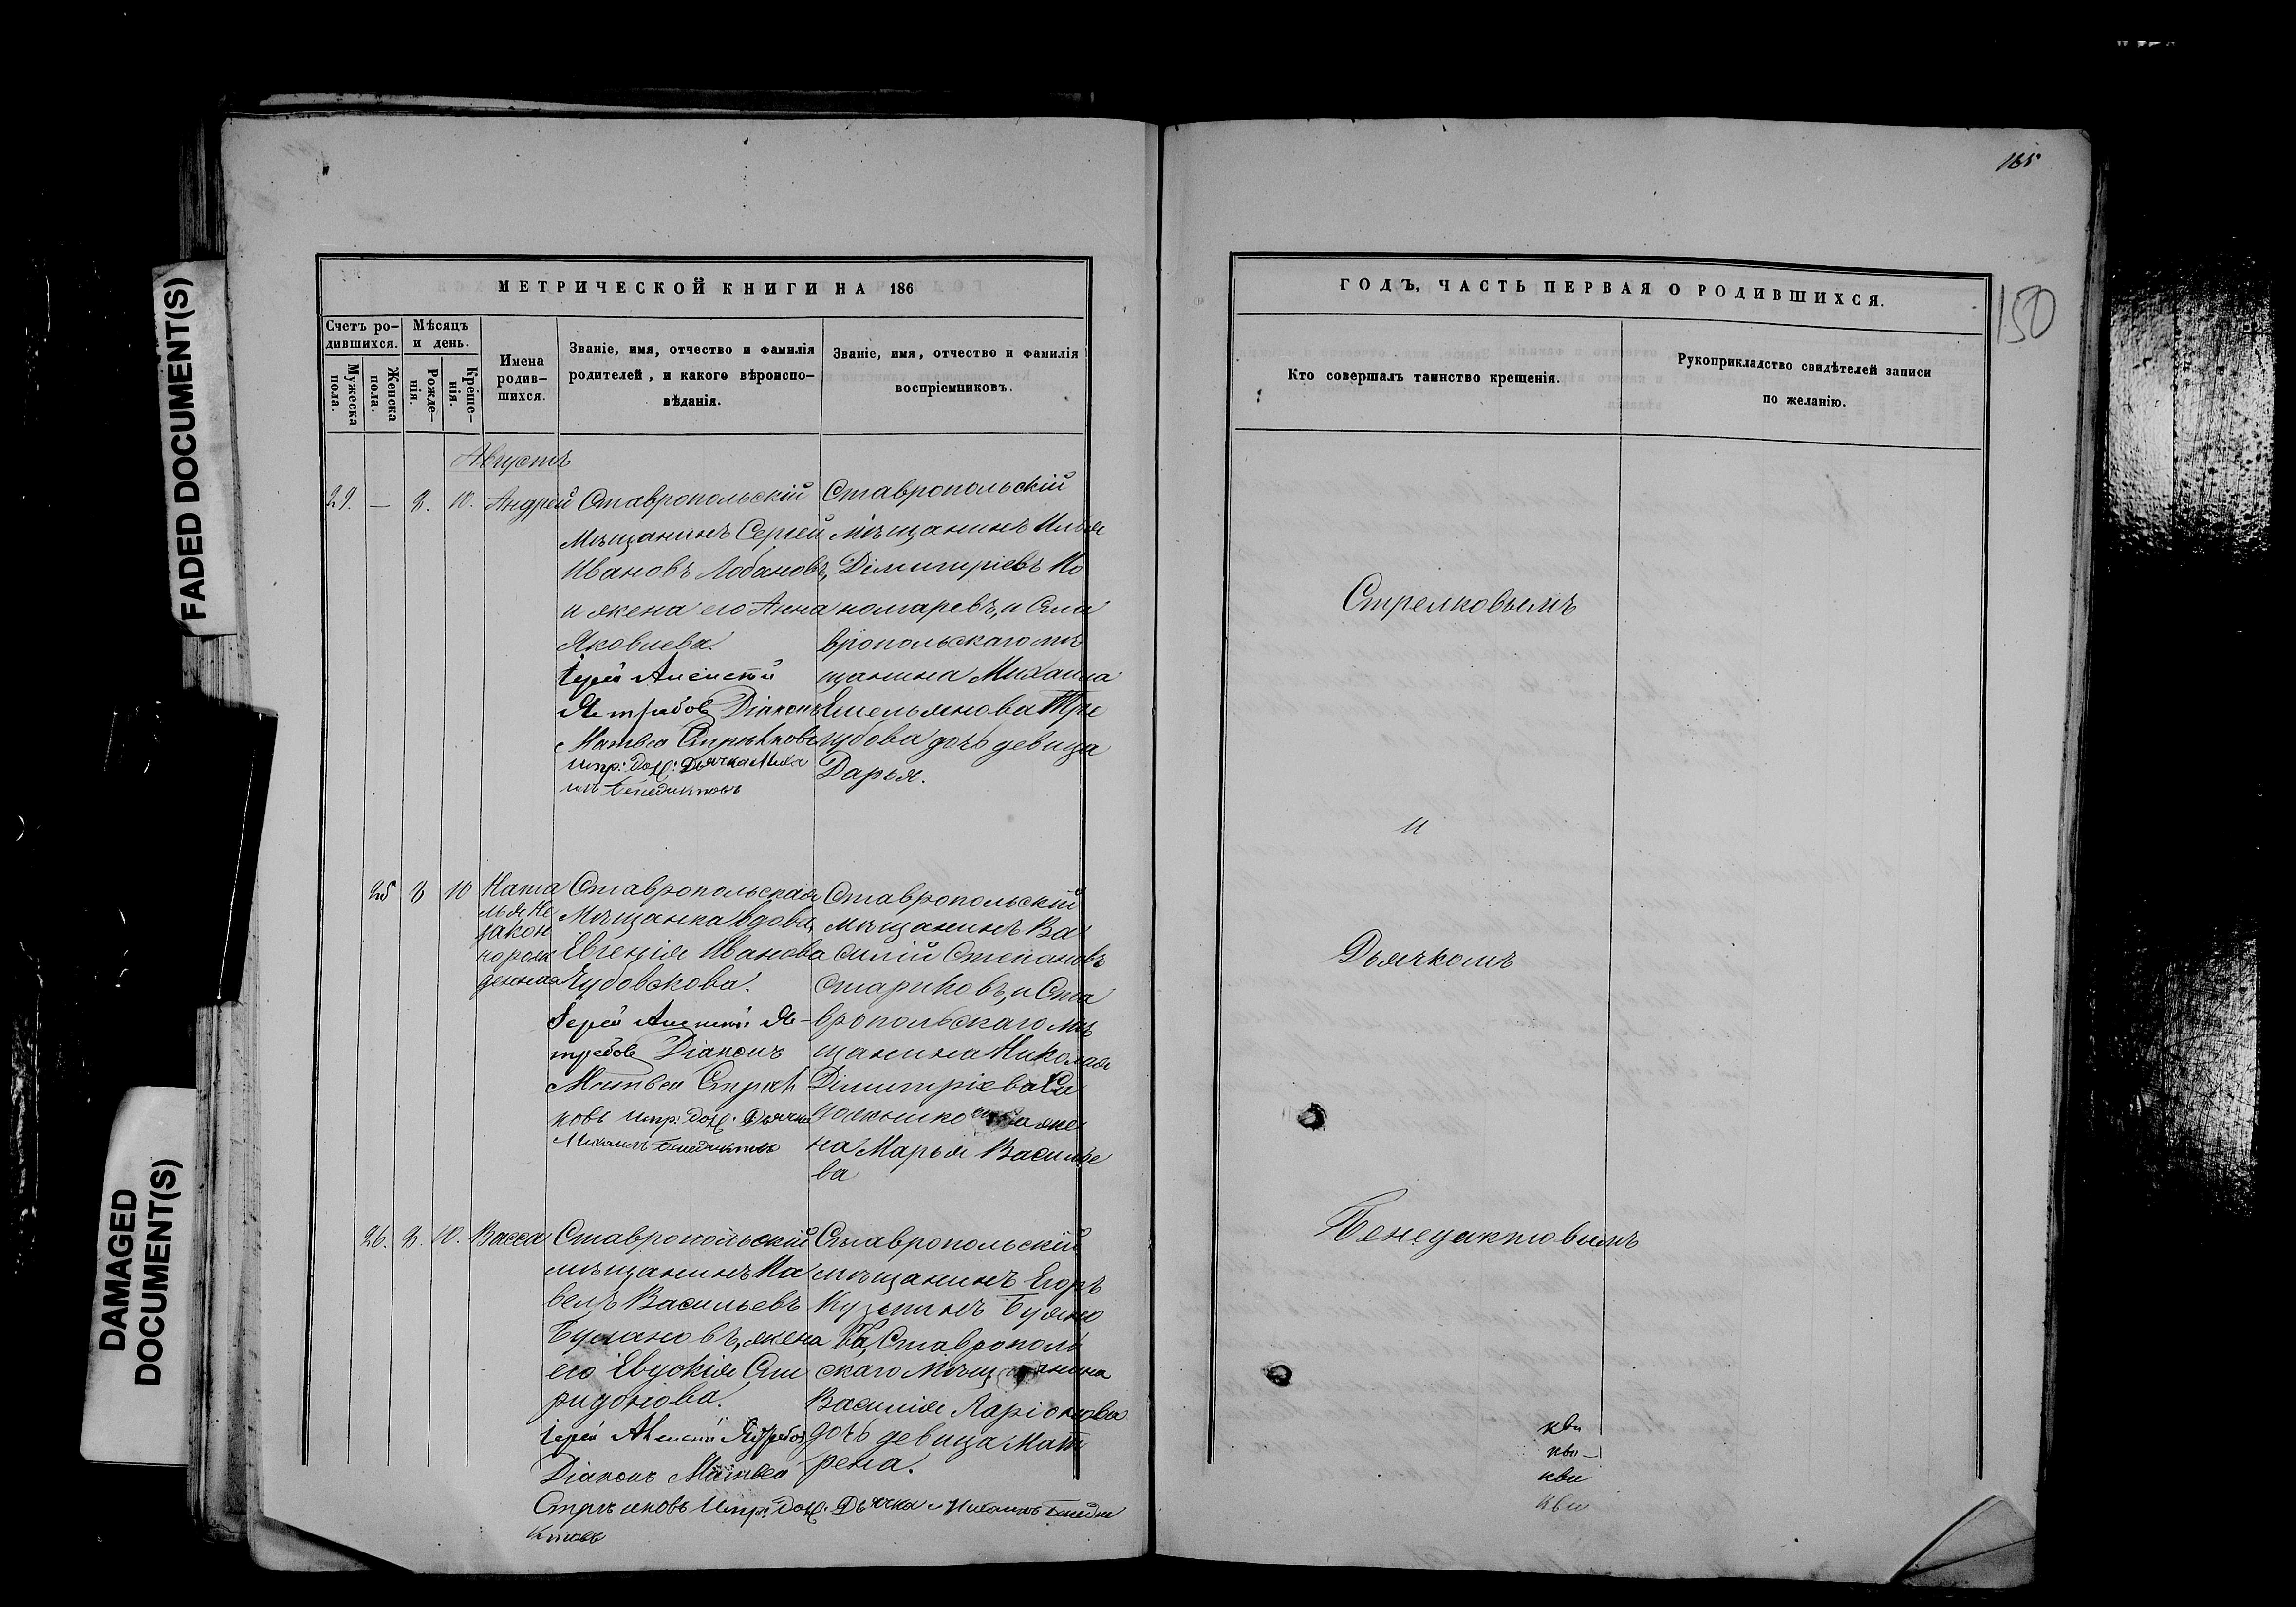 FADED DOCUMENT(S)
DAMAGED
DOCUMENT(S)
МЕТРИЧЕСКОЙ КНИГИ НА 186
Счетъ ро-
дившихся.
Мужеска
пола.
Женска
пола.
Мѣсяцъ
и день.
Рожде-
нія.
Креще-
нія.
Имена
родив-
шихся.
Званіе, имя, отчество и фамилія
родителей, и какого вѣроиспо-
вѣданія.
Званіе, имя, отчество и фамилія
воспріемниковъ.
Августъ
29. — 8. 10. Андрей
Ставропольскій
Мѣщанинъ Сергей
Ивановъ Лобановъ,
и жена его Анна
Яковлева.
Іерей Алексѣй
Ястребовъ Діаконъ
Матвей Стрелковъ
Испр: дол: Дьячка Миха
илъ Бенедиктовъ
Ставропольскій
мѣщанинъ Илья
Димитріевъ По
номаревъ, и Ста
вропольскаго мѣ
щанина Михаила
Емельянова Тре
губова дочь девица
Дарья.
25 8 10
Ната
лья Не
закон
норож
денная
Ставропольская
Мѣщанка вдова,
Евгенія Иванова
Чубовскова.
Іерей Алексѣй Яс-
требовъ Діаконъ
Матвей Стрел
ковъ Испр: дол: Дьячка
Михаилъ Бенедиктовъ
Ставропольскій
мѣщанинъ Ва
силій Степановъ
Стариковъ, и Ста
вропольскаго мѣ
щанина Николая
Димитріева
жe
на Марья Василье
ва
26. 8. 10. Васса
Ставропольскій
мѣщанинъ Па
велъ Васильевъ
Булановъ, жена
его Евдокія Спи
ридонова.
Іерей Алексѣй Ястребовъ
Діаконъ Матвей
Стрелковъ Испр: дол: Дьячка Михаилъ Бенеди
ктовъ
Ставропольскій
мѣщанинъ Егоръ
Кузминъ Буяно
въ, Ставрополь
скаго мѣщанина
Василія Ларіонова
дочь девица Мат
рена.
165
150
ГОДЪ, ЧАСТЬ ПЕРВАЯ О РОДИВШИХСЯ.
Кто совершалъ таинство крещенія.
Рукоприкладство свидѣтелей записи
по желанію.
Стрелковымъ
и
Дьячкомъ
Бенедиктовымъ